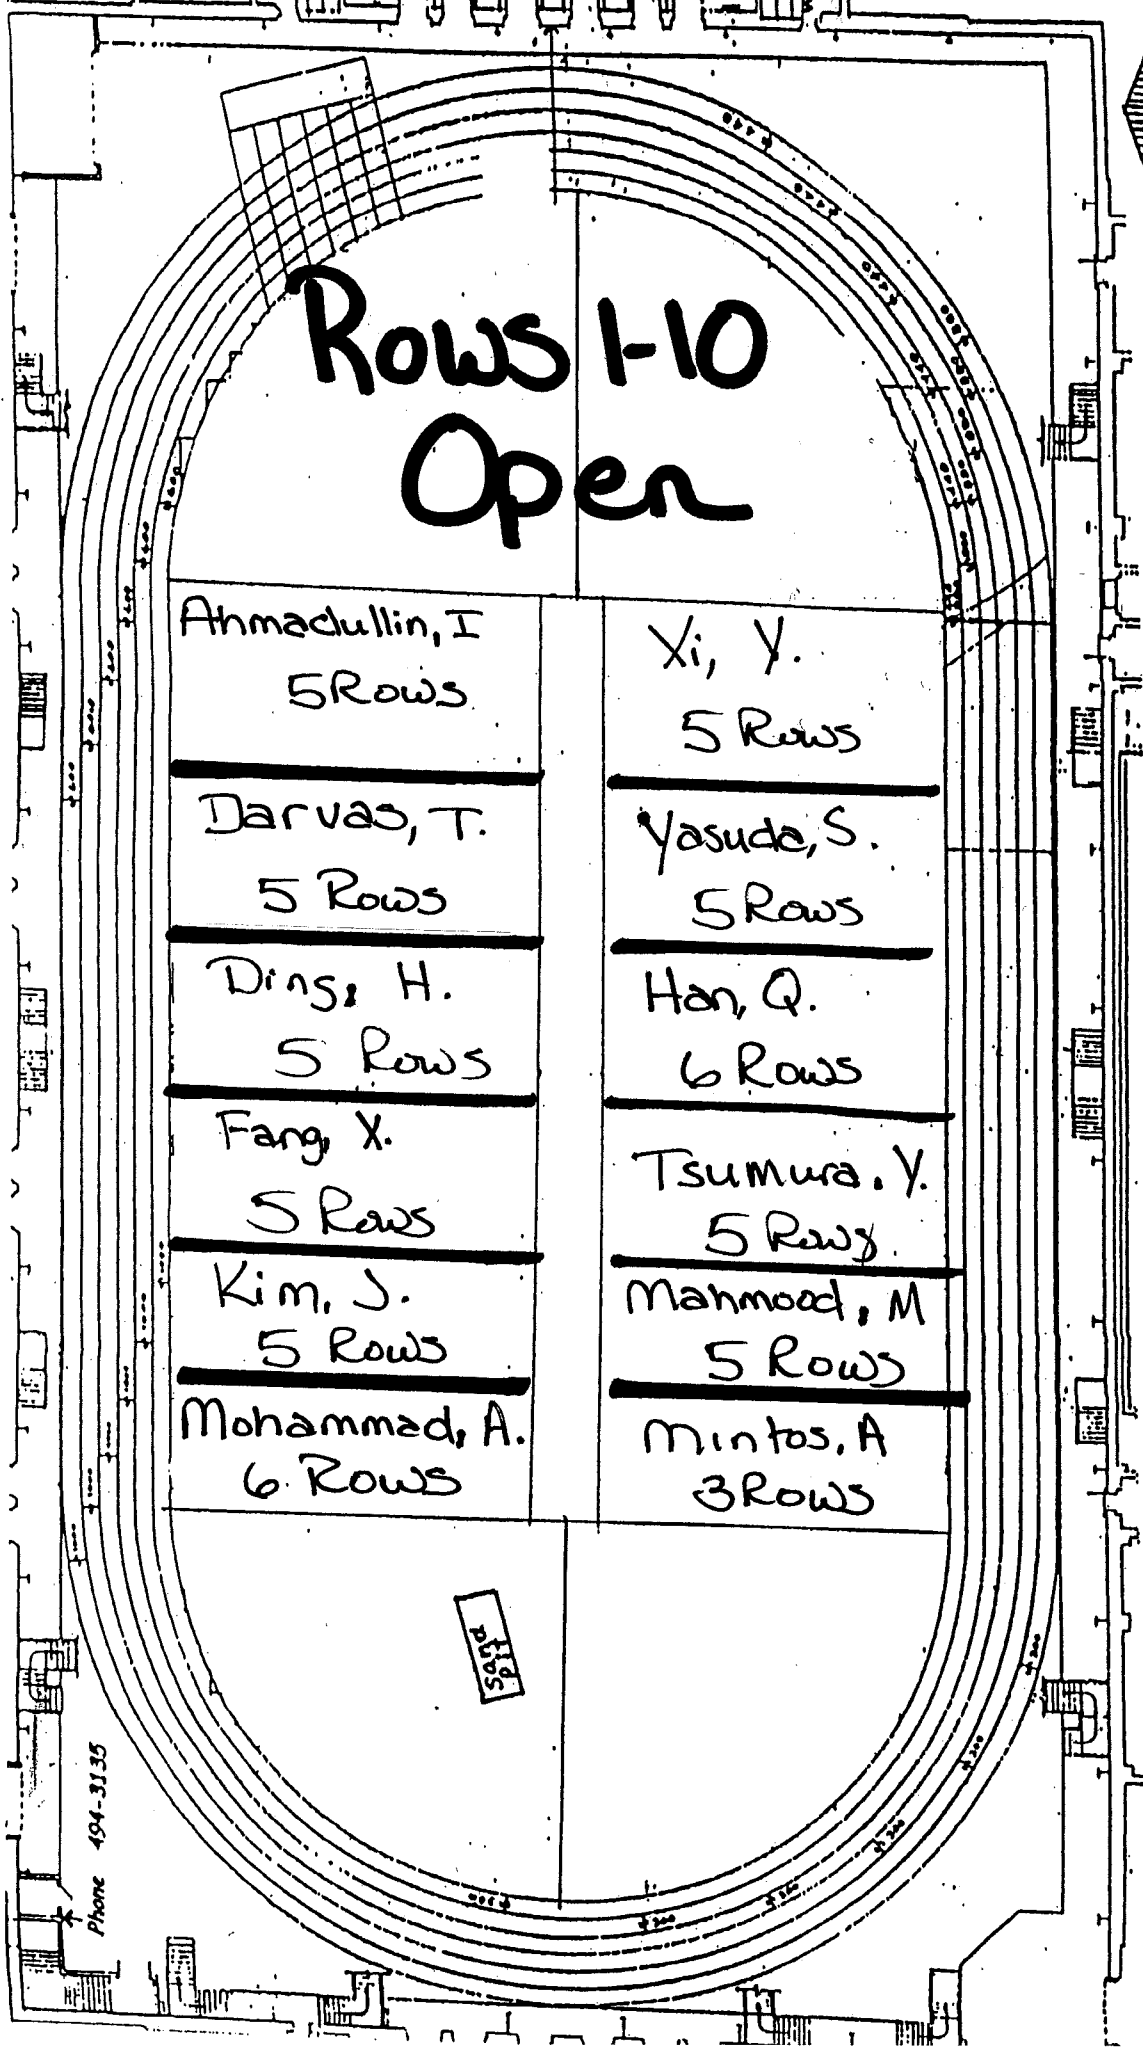 Rows 1-10
Open
Ahmadullin, I
5 Rows
Darvas, T.
5 Rows
Ding, H.
5 Rows
Fang, X.
5 Rows
Kim, J.
5 Rows
Mohammad, A.
6 Rows
Xi, Y.
5 Rows
Yasuda, S.
5 Rows
Han, Q.
6 Rows
Tsumura, Y.
5 Rows
Mahmood, M
5 Rows
Mintos, A
3 Rows
Sand
pit
Phone 494-3135